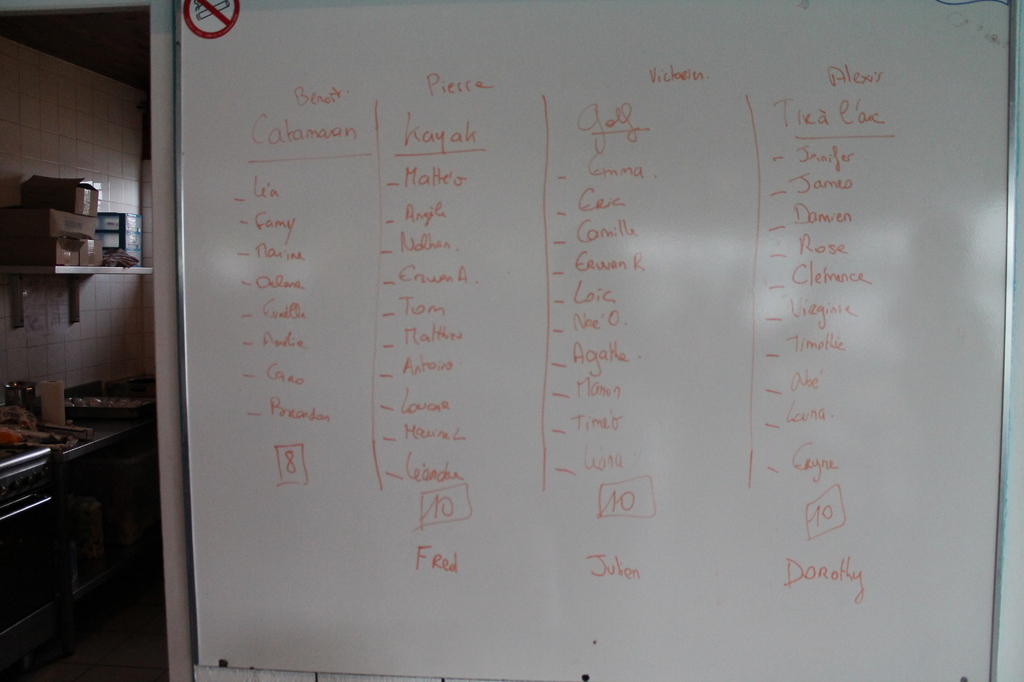 Benoit
Catamaran
- Léa
- Famy
- Marine
- Amélie
- Caro
- Brandon
8
Pierre
Kayak
- Mattéo
- Angie
- Nathan.
- Erwan A.
- Tom
- Matthieu
- Antoine
- Louane
- Marine L
- Léandre
10
Fred
Victorien.
Golf
- Emma.
- Eric
- Camille
- Erwan R
- Loïc
- Noé O.
- Agathe.
- Manon
- Timéo
- Liana
10
Julien
Alexis
Tir à l'arc
- Jennifer
- James
- Damien
- Rose
- Clémence
- Virginie
- Timothée
- Abé
- Louna.
10
Dorothy